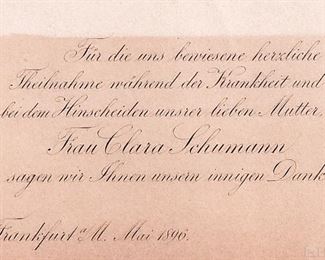 Für die uns bewiesene herzliche
Theilnahme während der Krankheit und
bei dem Hinscheiden unsrer lieben Mutter,
Frau Clara Schumann
sagen wir Ihnen unsern innigen Dank.
Frankfurt a/M. Mai 1896.